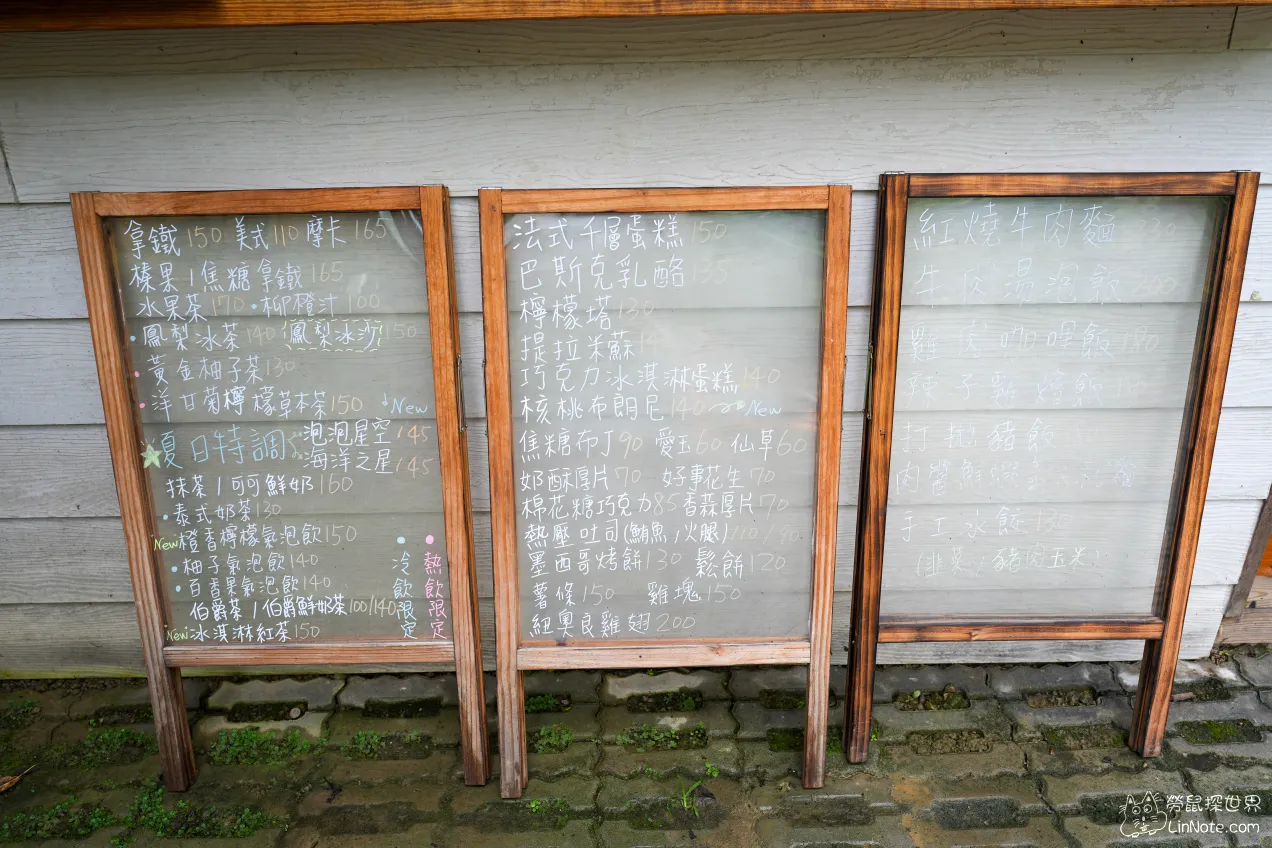 拿鐵 150 美式 110 摩卡 165
榛果/焦糖拿鐵 165
水果茶 170 •柳橙汁 100
•鳳梨冰茶 140 鳳梨冰沙 150
•黃金柚子茶 130
•洋甘菊檸檬草本茶 150 New
夏日特調 泡泡星空 145
海洋之星 145
抹茶/可可鮮奶 160
•泰式奶茶 130
New 橙香檸檬氣泡飲 150
•柚子氣泡飲 140
•百香果氣泡飲 140
伯爵茶/伯爵鮮奶茶 100/140
New 冰淇淋紅茶 150
•冷飲限定
•熱飲限定
法式千層蛋糕 150
巴斯克乳酪
檸檬塔 130
提拉米蘇
巧克力冰淇淋蛋糕 140
核桃布朗尼 140 New
焦糖布丁 90 愛玉 60 仙草 60
奶酥厚片 70 好事花生 70
棉花糖巧克力 85 香蒜厚片 70
熱壓吐司(鮪魚/火腿) 110/90
墨西哥烤餅 130 鬆餅 120
薯條 150 雞塊 150
紐奧良雞翅 200
紅燒牛肉麵
牛肉湯泡飯 200
雞肉咖哩飯 180
辣子雞燴飯
打拋豬飯
手工水餃 130
(韭菜/豬肉玉米)
勞鼠探世界
LinNote.com